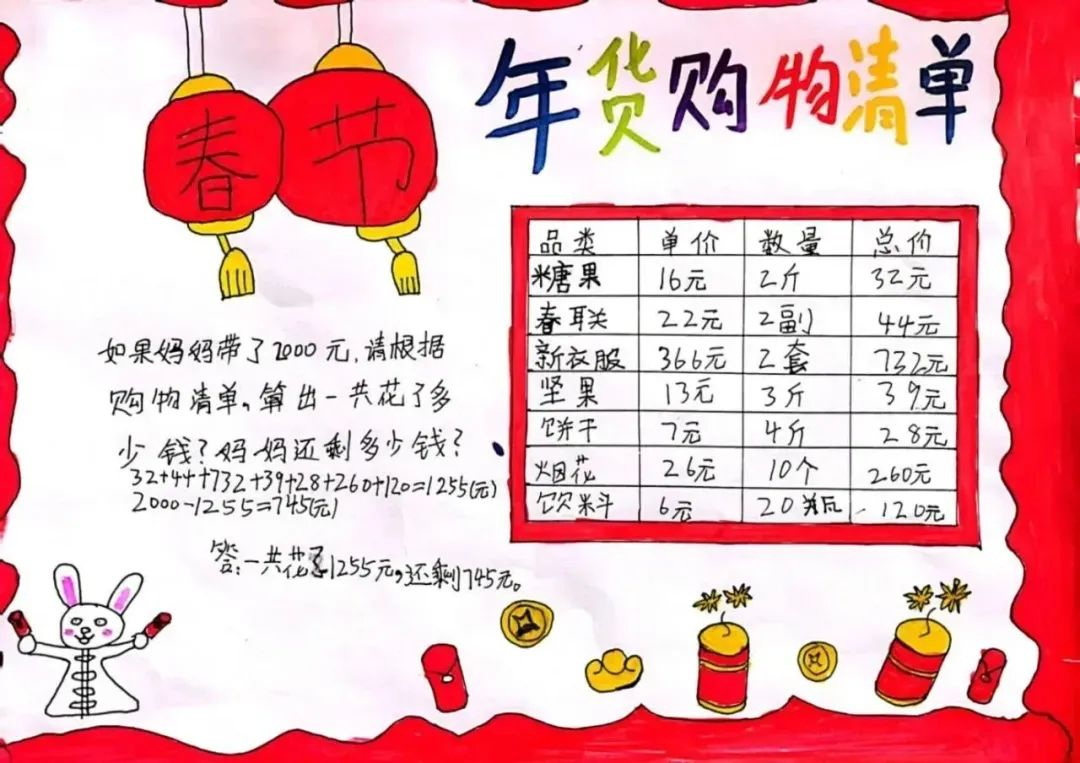 春节
年货购物清单
如果妈妈带了2000元,请根据
购物清单,算出一共花了多
少钱?妈妈还剩多少钱?
32+44+732+39+28+260+120=1255(元)
2000-1255=745(元)
答:一共花了1255元,还剩745元。
品类 单价 数量 总价
糖果 16元 2斤 32元
春联 22元 2副 44元
新衣服 366元 2套 732元
坚果 13元 3斤 39元
饼干 7元 4斤 28元
烟花 26元 10个 260元
饮料 6元 20瓶 120元